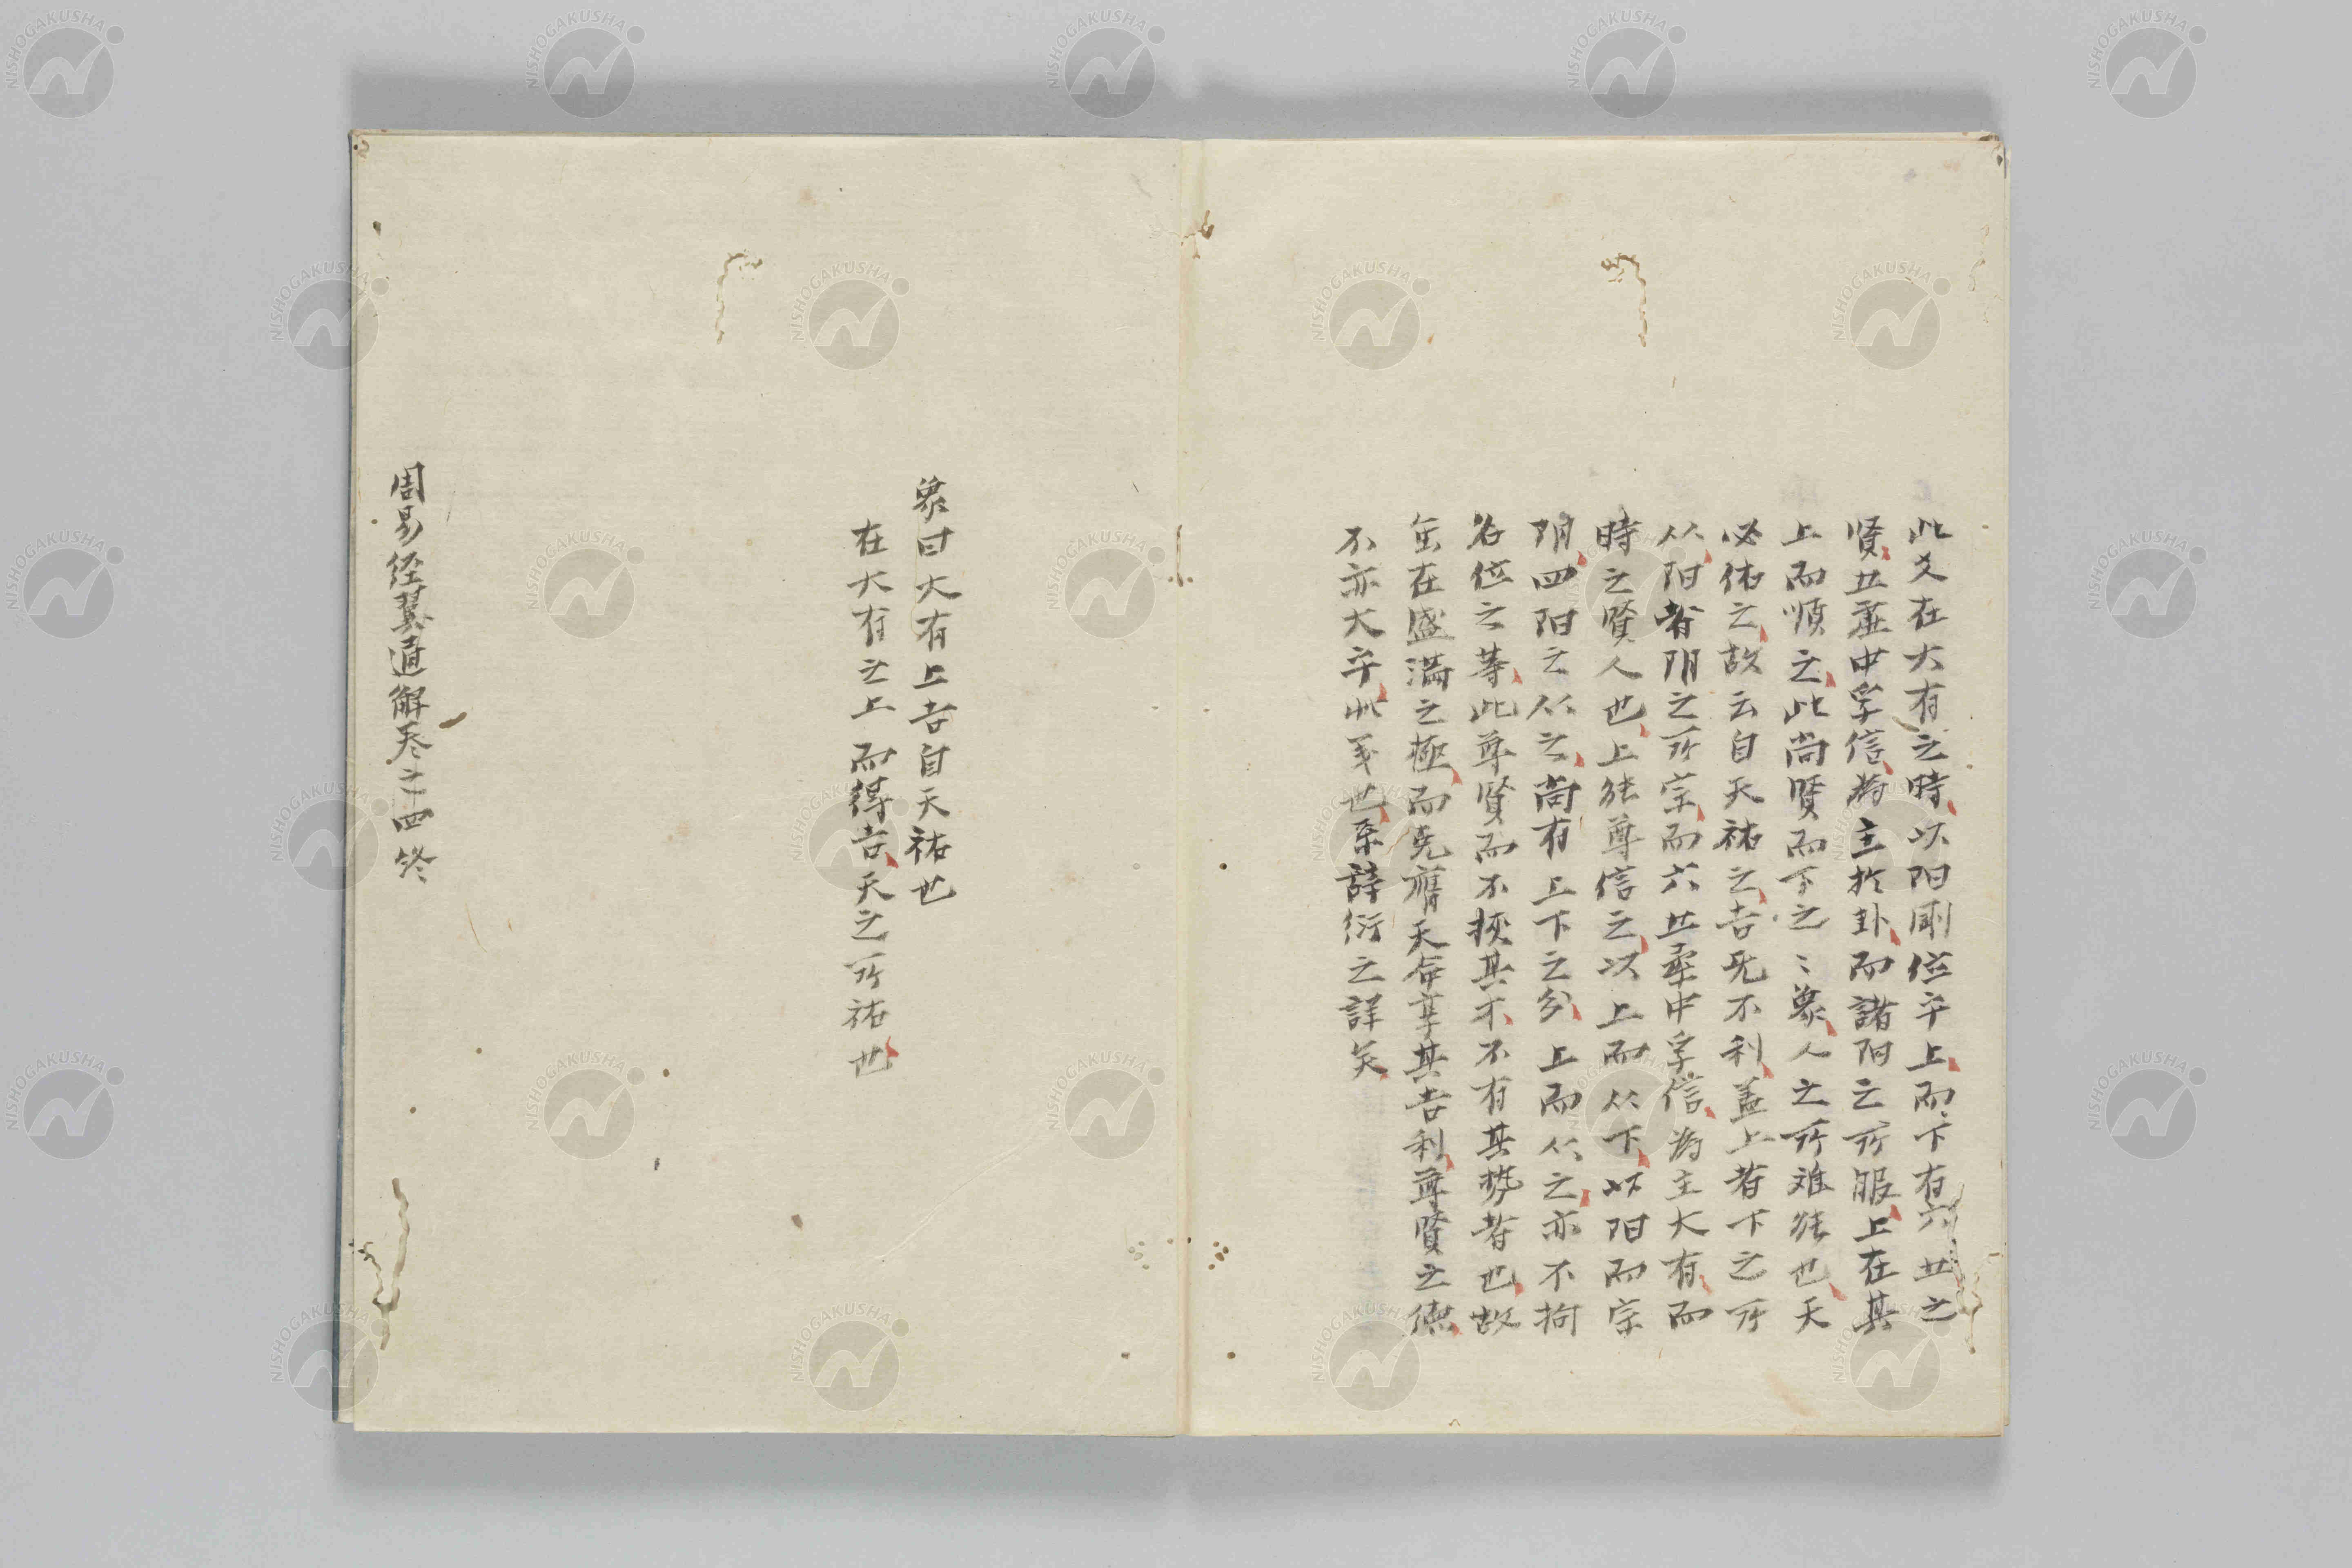 此爻在大有之時以阳剛位乎上而下有六五之
賢五虛中孚信為主於卦而諸阳之所服上在其
上而順之此尚賢而下之〻象人之所难能也天
必佑之故云自天祐之吉旡不利盖上者下之所
从阳者阴之所宗而六五柔中孚信為主大有而
時之賢人也上能尊信之以上而从下以阳而宗
阴四阳之从之尚有上下之分上而从之亦不拘
名位之等此尊賢而不挾其不不有其势者也故
虽在盛满之極而克膺天命享其吉利尊賢之德
不亦大乎此义也系辞衍之詳矣
象曰大有上吉自天祐也
在大有之上而得吉天之所祐也
周易经翼通解卷之四终
NISHOGAKUSHA